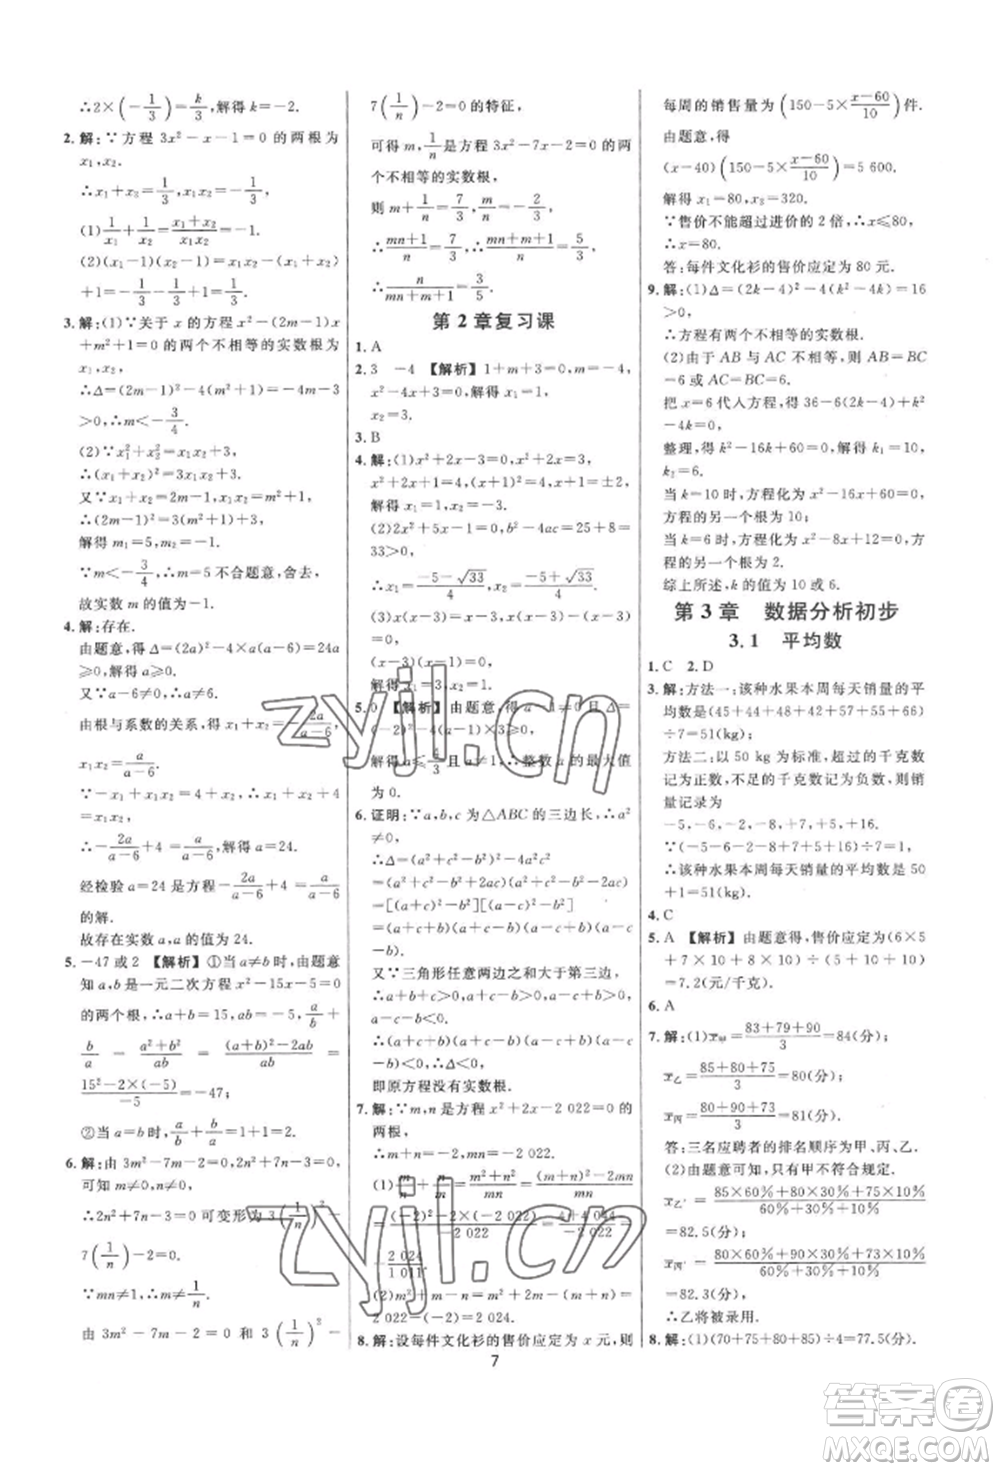 ∴2×(−1/3)=k/3,解得 k=−2.
2. 解:∵方程 3x²−x−1=0 的两根为
x₁,x₂.
∴x₁+x₂=1/3,x₁x₂=−1/3.
(1)1/x₁+1/x₂=(x₁+x₂)/(x₁x₂)=−1.
(2)(x₁−1)(x₂−1)=x₁x₂−(x₁+x₂)
+1=−1/3−1/3+1=1/3.
3. 解:(1)∵关于 x 的方程 x²−(2m−1)x
+m²=0 的两个不相等的实数根为
x₁,x₂,
∴Δ=(2m−1)²−4(m²−1)=−4m−3
>0,∴m<−3/4.
(2)∵x₁²+x₂²=x₁x₂+3,
∴(x₁+x₂)²−2x₁x₂=x₁x₂+3,
又∵x₁+x₂=2m−1,x₁x₂=m²+1,
∴(2m−1)²=3(m²+1)+3,
解得 m₁=5,m₂=−1.
∵m<−3/4,∴m=5 不合题意,舍去,
故实数 m 的值为−1.
4. 解:存在.
由题意,得Δ=(2a)²−4a(a−6)=24a
≥0,解得 a≥0.
又∵a−6≠0,∴a≠6.
由根与系数的关系,得 x₁+x₂=−2a/(a−6),
x₁x₂=a/(a−6).
∵−x₁+x₁x₂=4+x₂,∴x₁+x₂+4=
x₁x₂,
∴−2a/(a−6)+4=a/(a−6),解得 a=24.
经检验 a=24 是方程−2a/(a−6)+4=a/(a−6)
的解.
故存在实数 a,a 的值为 24.
5. −47或2 【解析】①当 a≠b 时,由题意
知 a,b 是一元二次方程 x²−15x−5=0
的两个根,∴a+b=15,ab=−5,∴a/b+
b/a=(a²+b²)/ab=((a+b)²−2ab)/ab=
(15²−2×(−5))/−5=−47;
②当 a=b 时,a/b+b/a=1+1=2.
6. 解:由 3m²−7m−2=0,2n²+7n−3=0,
可知 m≠0,n≠0,
∴2n²+7n−3=0 可变形为 3(1/n)²−
7(1/n)−2=0.
∵mn≠1,∴m≠1/n.
由 3m²−7m−2=0 和 3(1/n)²−
7(1/n)−2=0 的特征,
可得 m,1/n 是方程 3x²−7x−2=0 的两
个不相等的实数根,
则 m+1/n=7/3,m/n=−2/3,
∴(mn+1)/n=7/3,∴n/(mn+1)=3/7,
∴mn/(mn+m+1)=3/5.
第2章复习课
1. A
2. 3 −4 【解析】1+m+3=0,m=−4,
x²−4x+3=0,解得 x₁=1,
x₂=3.
3. B
4. 解:(1)x²+2x−3=0,x²+2x=3,
x²+2x+1=4,(x+1)²=4,x+1=±2,
解得 x₁=1,x₂=−3.
(2)2x²+5x−1=0,b²−4ac=25+8=
33>0,
∴x₁=(−5−√33)/4,x₂=(−5+√33)/4.
(3)(x−3)(x−1)=0,
(x−3)=0或(x−1)=0,
解得 x₁=3,x₂=1.
5. 0 【解析】由题意,得 a−1≠0 且 Δ=
(−2)²−4(a−1)×3≥0,
解得 a≤4/3 且 a≠1,∴整数 a 的最大值
为 0.
6. 证明:∵a,b,c 为△ABC 的三边长,∴a²
≠0.
∴Δ=(a²+c²−b²)²−4a²c²=
(a²+c²−b²+2ac)(a²+c²−b²−2ac)
=[(a+c)²−b²][(a−c)²−b²]=
(a+b+c)(a+c−b)(a−c+b)
(a−c−b).
又∵三角形任意两边之和大于第三边,
∴a+b+c>0,a+c−b>0,a−c+
b>0,a−c−b<0,
∴(a+b+c)(a+c−b)(a−c+b)
(a−c−b)<0,∴Δ<0,
即原方程没有实数根.
7. 解:∵m,n是方程 x²+2x−2 022=0的
两根,
∴m+n=−2,mn=−2 022.
(1)m/n+n/m=(m²+n²)/mn=((m+n)²−2mn)/mn
=((−2)²−2×(−2 022))/−2 022=(4+4 044)/−2 022=
−2 024/1 011.
(2)m²+2m−mn=m²+m+m−mn=
(−2)−(−2 022)=2 024.
8. 解:设每件文化衫的售价应定为 x 元,则
每周的销售量为(150−5×(x−60)/10)件.
由题意,得
(x−40)(150−5×(x−60)/10)=5 600.
解得 x₁=80,x₂=320.
∵售价不能超过进价的 2 倍,∴x≤80.
∴x=80.
答:每件文化衫的售价应定为 80 元.
9. 解:(1)Δ=(2k−4)²−4(k²−4k)=16
>0,
∴方程有两个不相等的实数根.
(2)由于 AB 与 AC 不相等,当 AB=BC
=6 或 AC=BC=6,
把 x=6代入方程,得 36−6(2k−4)+k²
−4k=0,
整理,得 k²−16k+60=0,解得 k₁=10,
k₂=6.
当 k=10 时,方程化为 x²−16x+60=0,
方程的另一个根为 10;
当 k=6 时,方程化为 x²−8x+12=0,方
程的另一个根为 2.
综上所述,k 的值为 10 或 6.
第3章 数据分析初步
3.1 平均数
1. C 2. D
3. 解:方法一:该种水果本周每天销量的平
均数是(45+44+48+42+57+55+66)
÷7=51(kg).
方法二:以 50 kg 为标准,超过的千克数
记为正数,不足的千克数记为负数,则销
量记录为
−5,−6,−2,−8,+7,+5,+16.
∵(−5−6−2−8+7+5+16)÷7=1.
∴该种水果本周每天销量的平均数是 50
+1=51(kg).
4. C
5. A 【解析】由题意得,售价应定为(6×5
+7×10+8×10)÷(5+10+10)
=7.2(元/千克).
6. A
7. 解:(1)x̄甲=(83+79+90)/3=84(分),
x̄乙=(85+80+75)/3=80(分),
x̄丙=(80+90+73)/3=81(分).
答:三名应聘者的排名顺序为甲、丙、乙.
(2)由题意可知,甲不符合规定.
x̄乙′=(85×60%+80×30%+75×10%)/(60%+30%+10%)
=82.5(分),
x̄丙′=(80×60%+90×30%+73×10%)/(60%+30%+10%)
=82.3(分).
∴乙将被录用.
8. 解:(1)(70+75+80+85)÷4=77.5(分).
7
zyjl.cn
zyjl.cn
答案圈
MXQE.COM